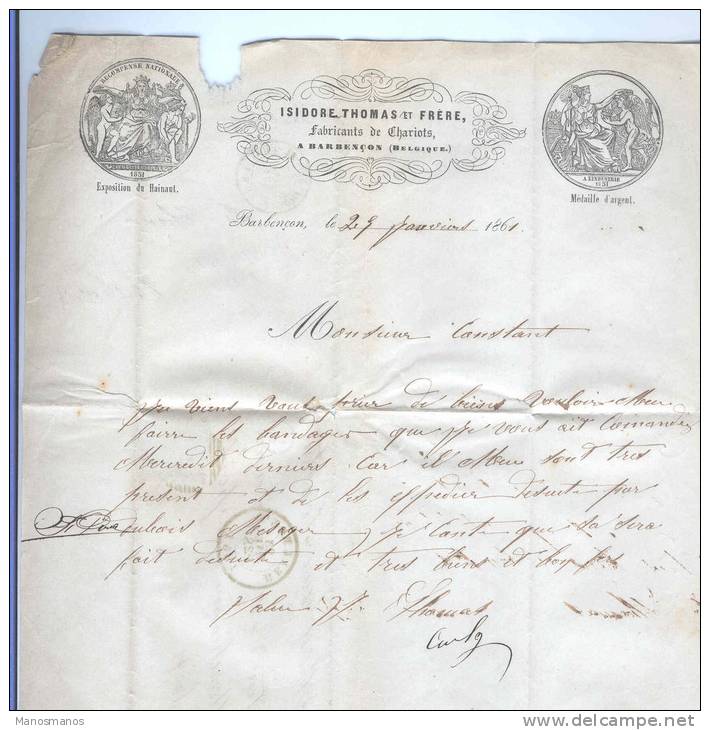 RECOMPENSE NATIONALE
1851
Exposition du Hainaut.
ISIDORE THOMAS ET FRÈRE,
Fabricants de Chariots,
A BARBENÇON (BELGIQUE.)
A L'INDUSTRIE
1851
Médaille d'argent.
Barbençon, le 29 Janviers 1861.
Monsieur Constant
Je viens vous prier de biens vouloirs Meu
fairre les bandages que je vous ait Comandez
Mercredit derniers Car il Meu sont tres
present et de les espedier desuite par
Dubois Mesager je Conte que sa sera
fait desuite et tres biens et
Thomas
Manosmanos
www.delcampe.net